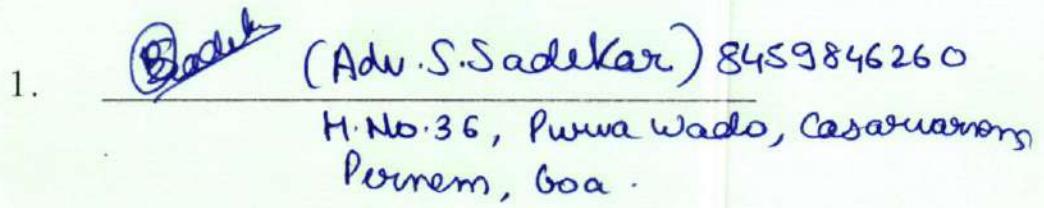 1. (Adv. S. Sadekar) 8459846260
H. No. 36, Purva Wado, Casarvarnem,
Pernem, Goa.